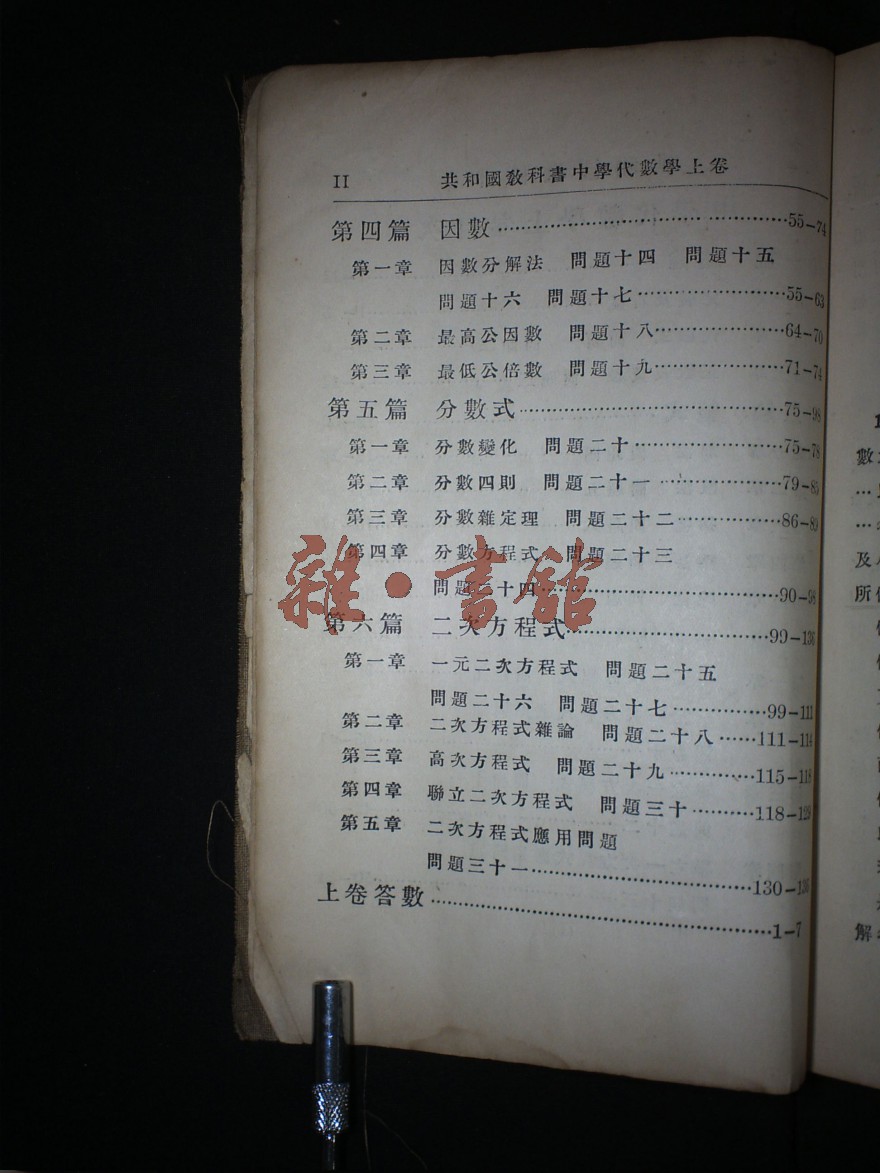 II 共和國敎科書中學代數學上卷
第四篇 因數 55–74
第一章 因數分解法 問題十四 問題十五
問題十六 問題十七 55–63
第二章 最高公因數 問題十八 64–70
第三章 最低公倍數 問題十九 71–74
第五篇 分數式 75–98
第一章 分數變化 問題二十 75–78
第二章 分數四則 問題二十一 79–85
第三章 分數雜定理 問題二十二 86–89
第四章 分數方程式 問題二十三
問題二十四 90–98
第六篇 二次方程式 99–136
第一章 一元二次方程式 問題二十五
問題二十六 問題二十七 99–111
第二章 二次方程式雜論 問題二十八 111–114
第三章 高次方程式 問題二十九 115–118
第四章 聯立二次方程式 問題三十 118–129
第五章 二次方程式應用問題
問題三十一 130–136
上卷答數 1–7
雜·書館
數
及
所
解